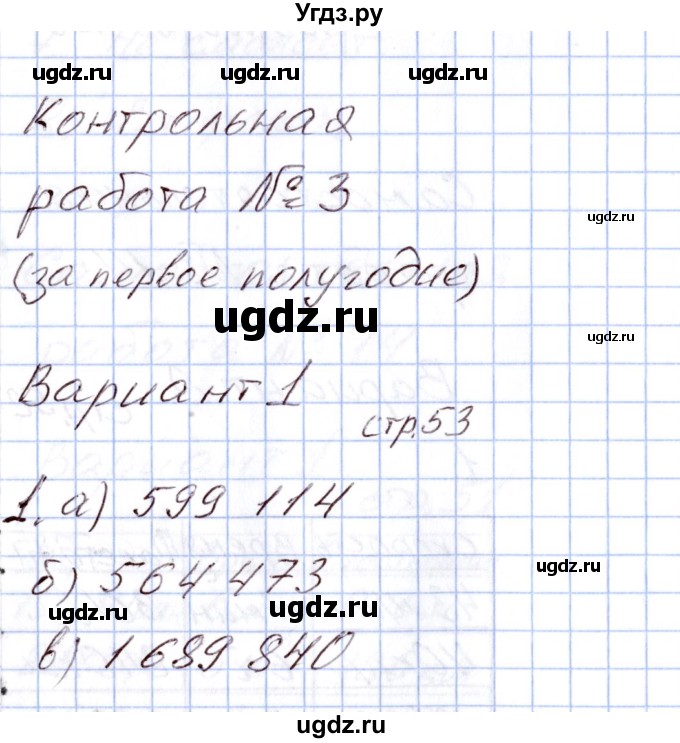 Угдз.ру
ugdz.ru ugdz.ru ugdz.ru
Контрольная
работа № 3
ugdz.ru
(за первое полугодие)
ugdz.ru
ugdz.ru
Вариант 1
стр.53
1. а) 599 114
ugdz.ru
б) 564 473
ugdz.ru ugdz.ru
в) 1 689 840
ugdz.ru
ugdz.ru